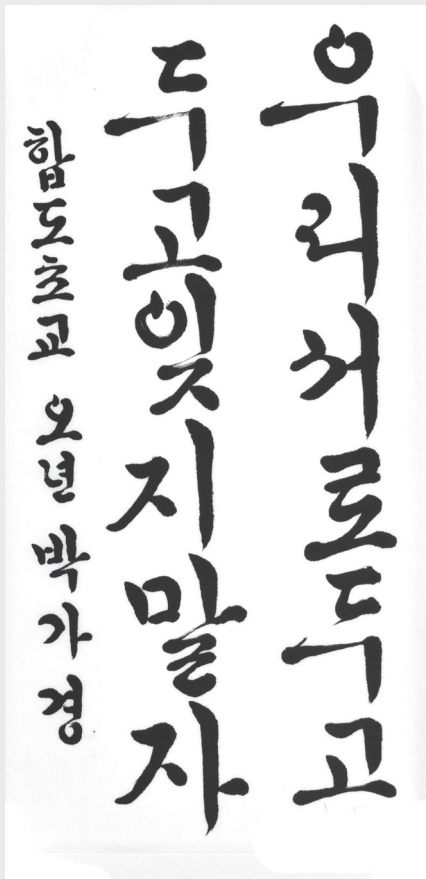 우리서로두고
두고잊지말자
합도초교 오년 박가경